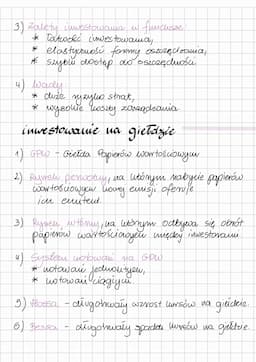 3) Zalety inwestowania w fundusze
* łatwość inwestowania,
* elastyczność formy oszczędzania,
* szybki dostęp do oszczędności
4) Wady
* duże ryzyko strat,
* wysokie koszty zarządzania
inwestowanie na giełdzie
1) GPW - Giełda Papierów Wartościowych
2) Rynek pierwotny, na którym nabycie papierów
wartościowych nowej emisji oferuje
ich emitent
3) Rynek wtórny, na którym odbywa się obrót
papierów wartościowych między inwestorami
4) System notowań na GPW
* notowań jednolitych,
* notowań ciągłych
5) Hossa - długotrwały wzrost kursów na giełdzie.
6) Bessa - długotrwały spadek kursów na giełdzie.